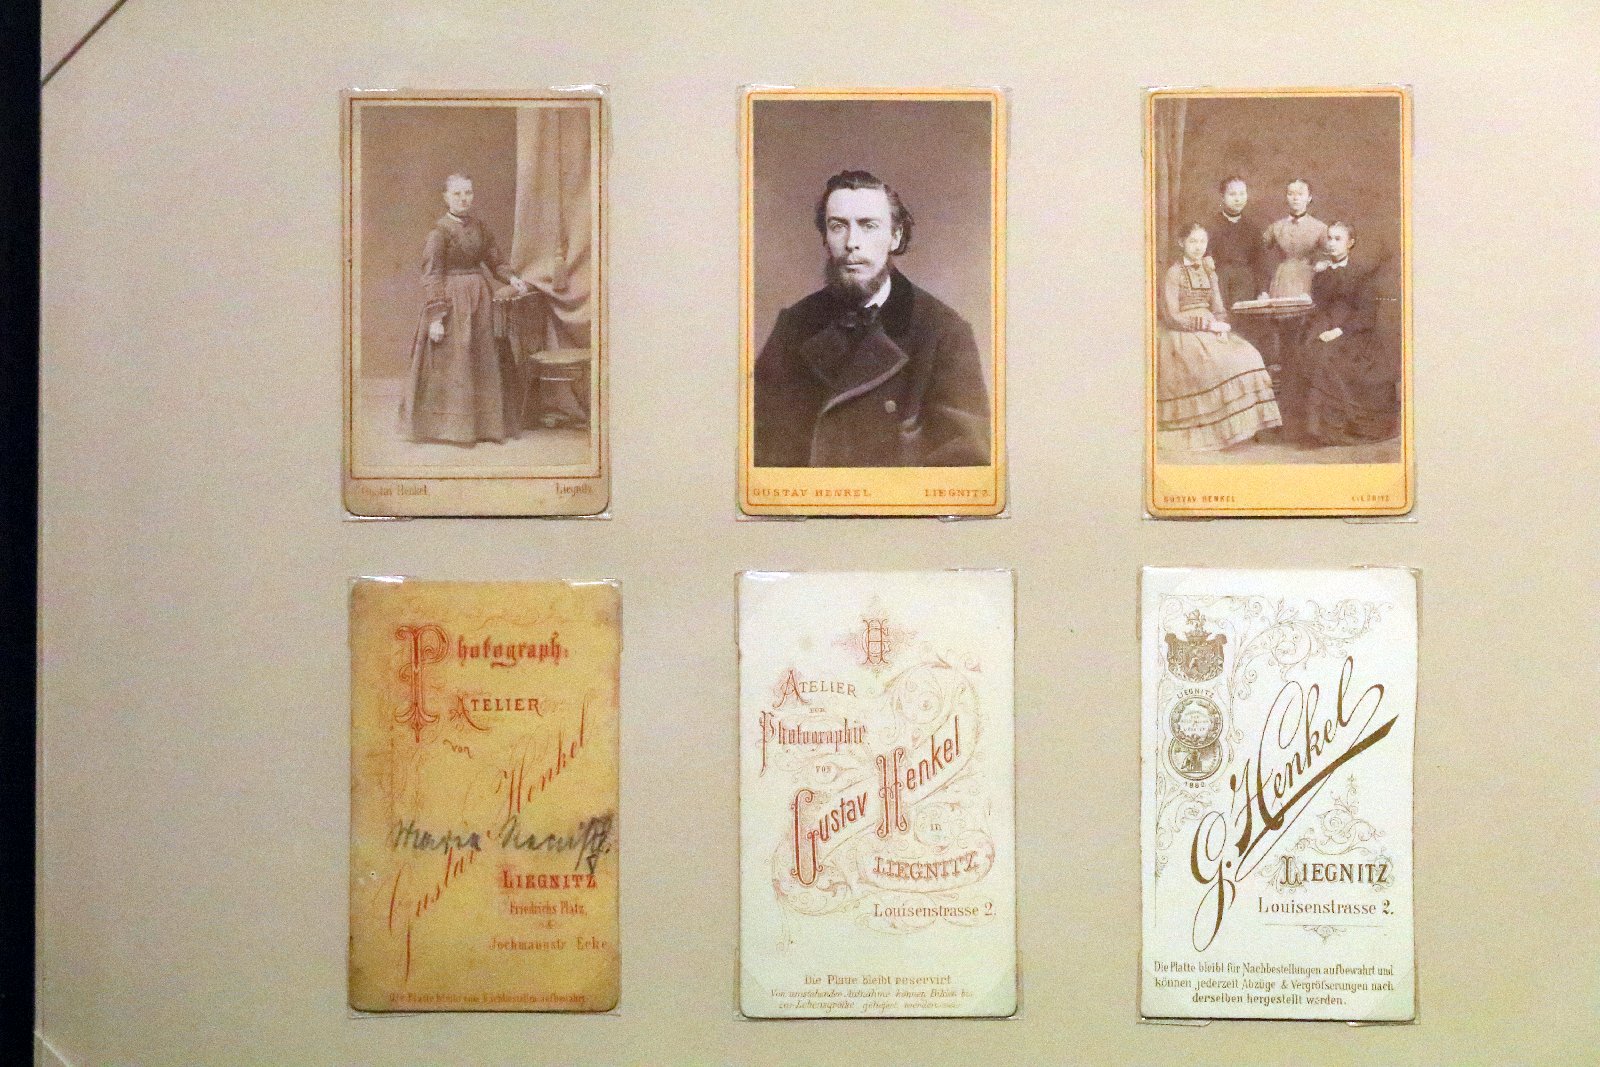 Gustav Henkel Liegnitz
GUSTAV HENKEL LIEGNITZ
GUSTAV HENKEL LIEGNITZ
Photograph.
ATELIER
von
Gustav Henkel
Maria
LIEGNITZ
Friedrichs Platz,
&
Jochmannstr Ecke
Die Platte bleibt zum Nachbestellen aufbewahrt
GH
ATELIER
FÜR
Photographie
VON
Gustav Henkel
in
LIEGNITZ
Louisenstrasse 2.
Die Platte bleibt reservirt
Von umstehender Aufnahme können Bilder bis
zur Lebensgrösse geliefert werden
LIEGNITZ
1880
G. Henkel
LIEGNITZ
Louisenstrasse 2.
Die Platte bleibt für Nachbestellungen aufbewahrt und
können jederzeit Abzüge & Vergröfserungen nach
derselben hergestellt werden.